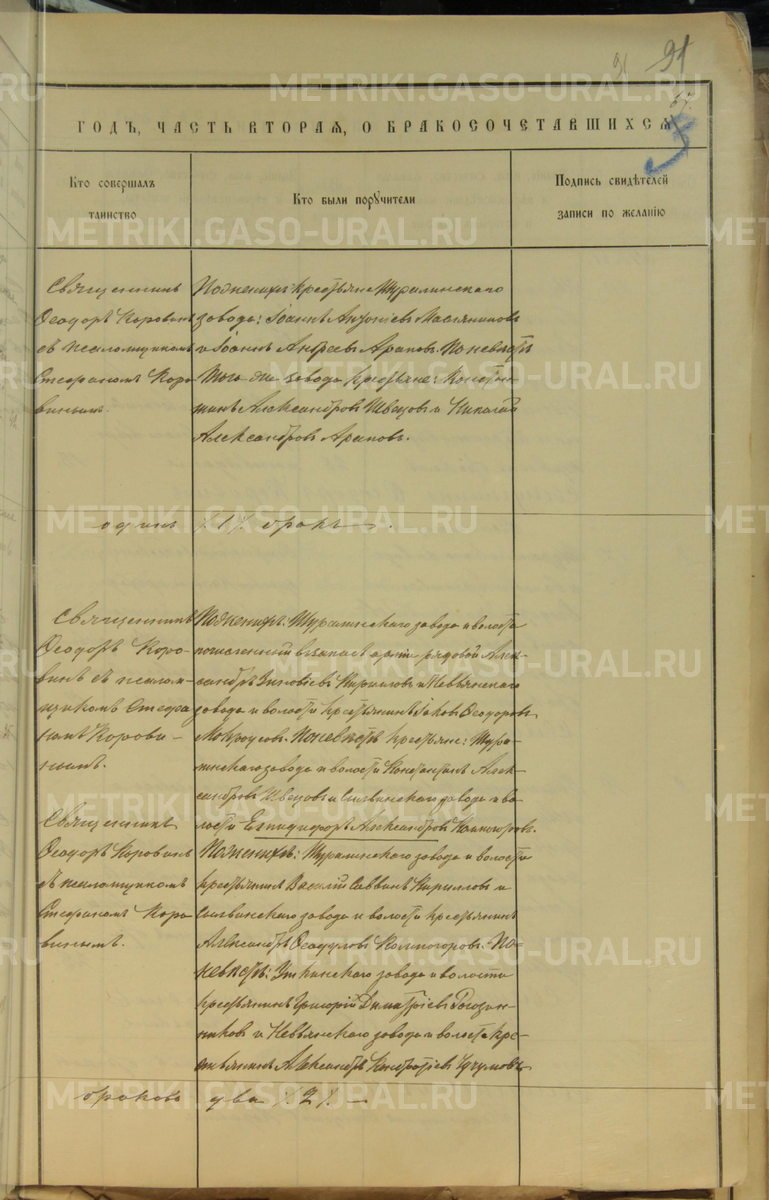 91 91
67.
ГОДЪ, ЧАСТЬ ВТОРАЯ, О БРАКОСОЧЕТАВШИХСЯ
Кто совершалъ
таинство
Кто были поручители
Подпись свидѣтелей
записи по желанію
Священникъ
Ѳеодоръ Коровинъ
съ псаломщикомъ
Стефаномъ Коро-
винымъ.
По женихѣ: крестьяне Шуралинскаго
завода: Іоаннъ Антоніевъ Масленниковъ
и Іоаннъ Андреевъ Араповъ. По невѣстѣ
того же завода крестьяне: Констан-
тинъ Александровъ Швецовъ и Николай
Александровъ Араповъ.
одинъ /1/ бракъ.
Священникъ
Ѳеодоръ Коро-
винъ съ псалом-
щикомъ Стефа-
номъ Корови-
нымъ.
По женихѣ: Шуралинскаго завода и волости
въ запасъ арміи рядовой Алек-
сандръ Зиновіевъ Кирилловъ и Невьянскаго
завода и волости крестьянинъ Іаковъ Ѳеодоровъ
По невѣстѣ крестьяне: Шура-
линскаго завода и волости Константинъ Алек-
сандровъ Швецовъ и Сылвинскаго завода и во-
лости Александровъ Колмогоровъ.
Священникъ
Ѳеодоръ Коровинъ
съ псаломщикомъ
Стефаномъ Коро-
винымъ.
По женихѣ: Шуралинскаго завода и волости
крестьянинъ Василій Саввинъ Кирилловъ и
Сылвинскаго завода и волости крестьянинъ
Александръ Колмогоровъ. По
невѣстѣ: Уткинскаго завода и волости
крестьянинъ Григорій Димитріевъ Рогозин-
никовъ и Невьянскаго завода и волости кре-
стьянинъ Александръ Кондратіевъ
браковъ два /2/
METRIKI.GASO-URAL.RU